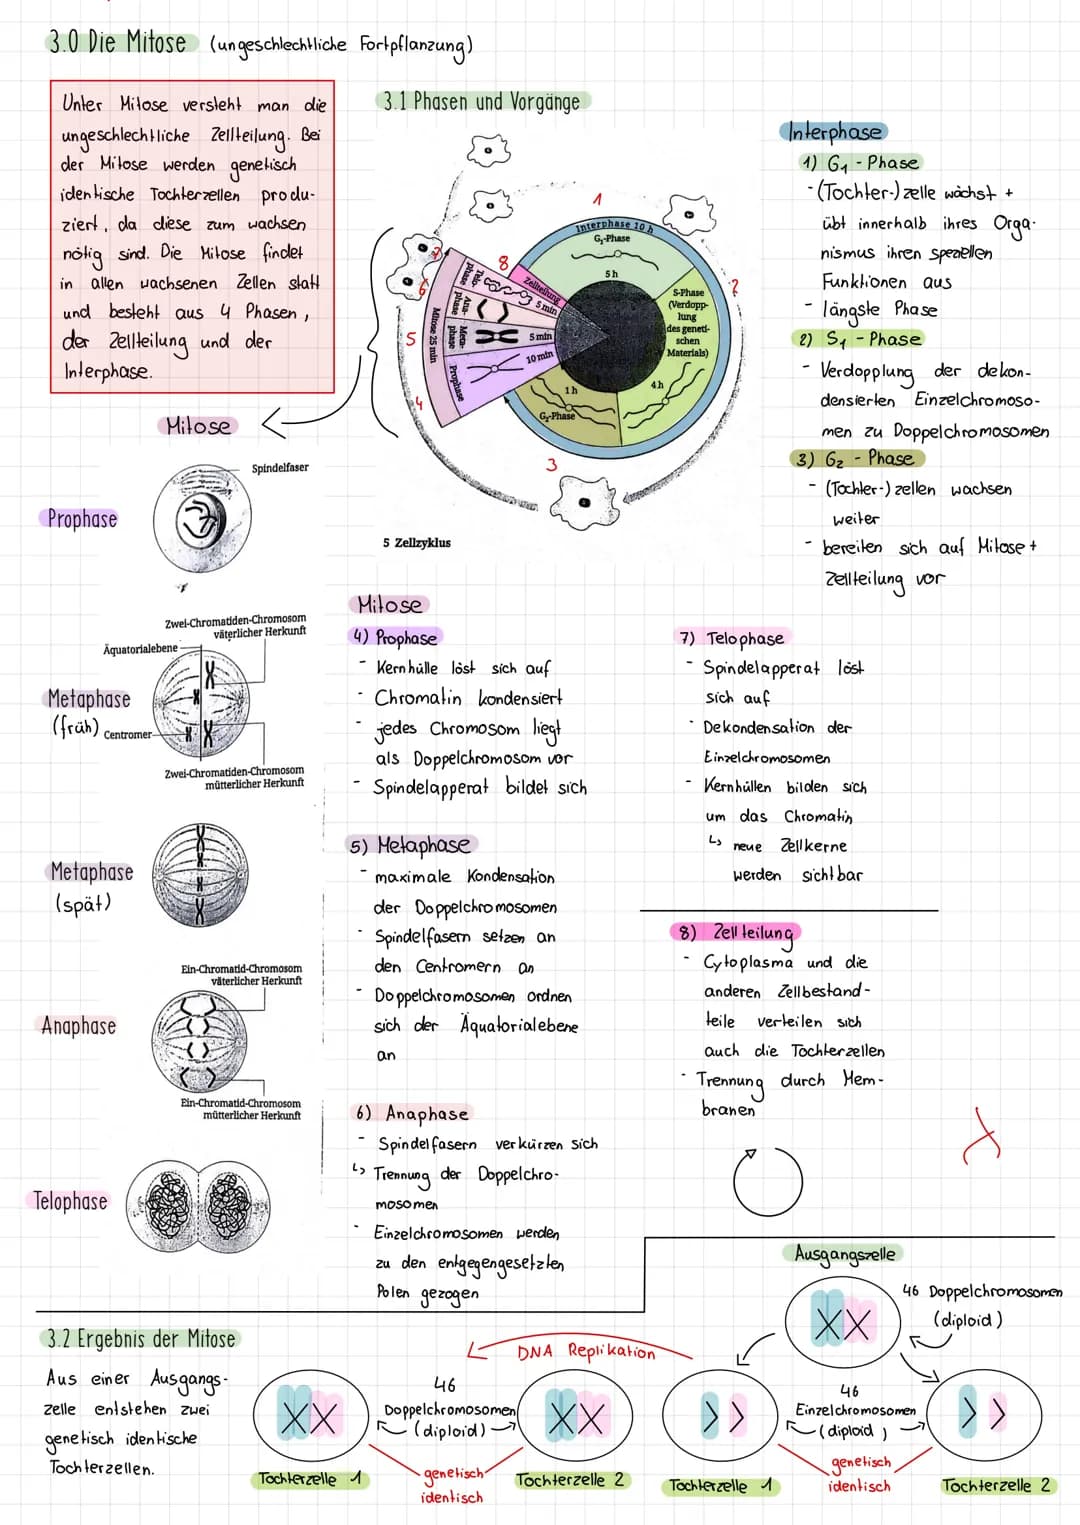 3.0 Die Mitose (ungeschlechtliche Fortpflanzung)
Unter Mitose versteht man die
ungeschlechtliche Zellteilung. Bei
der Mitose werden genetisch
identische Tochterzellen produ-
ziert, da diese zum wachsen
nötig sind. Die Mitose findet
in allen wachsenen Zellen statt
und besteht aus 4 Phasen,
der Zellteilung und der
Interphase.
3.1 Phasen und Vorgänge
1
Interphase 10 h
G₁-Phase
5 h
2
S-Phase
(Verdopp-
lung
des geneti-
schen
Materials)
4 h
1 h
G₂-Phase
3
8
Zellteilung
5 min
7
Telo-
phase
6
Ana-
phase
5
Meta-
phase
5 min
Mitose 25 min
4
Prophase
10 min
5 Zellzyklus
Interphase
1) G₁ - Phase
- (Tochter-) zelle wächst +
übt innerhalb ihres Orga-
nismus ihren speziellen
Funktionen aus
- längste Phase
2) S₁ - Phase
- Verdopplung der dekon-
densierten Einzelchromoso-
men zu Doppelchromosomen
3) G₂ - Phase
- (Tochter-) zellen wachsen
weiter
- bereiten sich auf Mitose +
Zellteilung vor
Mitose
Spindelfaser
Prophase
Zwei-Chromatiden-Chromosom
väterlicher Herkunft
Äquatorialebene
Metaphase
(früh)
Centromer
Zwei-Chromatiden-Chromosom
mütterlicher Herkunft
Metaphase
(spät)
Ein-Chromatid-Chromosom
väterlicher Herkunft
Anaphase
Ein-Chromatid-Chromosom
mütterlicher Herkunft
Telophase
Mitose
4) Prophase
- Kernhülle löst sich auf
- Chromatin kondensiert
- jedes Chromosom liegt
als Doppelchromosom vor
- Spindelapperat bildet sich
5) Metaphase
- maximale Kondensation
der Doppelchromosomen
- Spindelfasern setzen an
den Centromern an
- Doppelchromosomen ordnen
sich der Äquatorialebene
an
6) Anaphase
- Spindelfasern verkürzen sich
↳ Trennung der Doppelchro-
mosomen
- Einzelchromosomen werden
zu den entgegengesetzten
Polen gezogen
7) Telophase
- Spindelapperat löst
sich auf
- Dekondensation der
Einzelchromosomen
- Kernhüllen bilden sich
um das Chromatin
↳ neue Zellkerne
werden sichtbar
8) Zellteilung
- Cytoplasma und die
anderen Zellbestand-
teile verteilen sich
auch die Tochterzellen
- Trennung durch Mem-
branen
3.2 Ergebnis der Mitose
Aus einer Ausgangs-
zelle entstehen zwei
genetisch identische
Tochterzellen.
Ausgangszelle
46 Doppelchromosomen
(diploid)
DNA Replikation
46
Doppelchromosomen
(diploid)
genetisch
identisch
Tochterzelle 1
Tochterzelle 2
46
Einzelchromosomen
(diploid)
genetisch
identisch
Tochterzelle 1
Tochterzelle 2